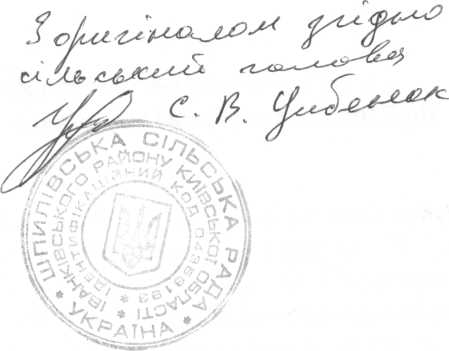 З оригіналом згідно
сільський голова
С. В. Цибенок
ШПИЛІВСЬКА СІЛЬСЬКА РАДА
* УКРАЇНА *
ІВАНКІВСЬКОГО РАЙОНУ КИЇВСЬКОЇ ОБЛАСТІ *
ІДЕНТИФІКАЦІЙНИЙ КОД 04359193 *